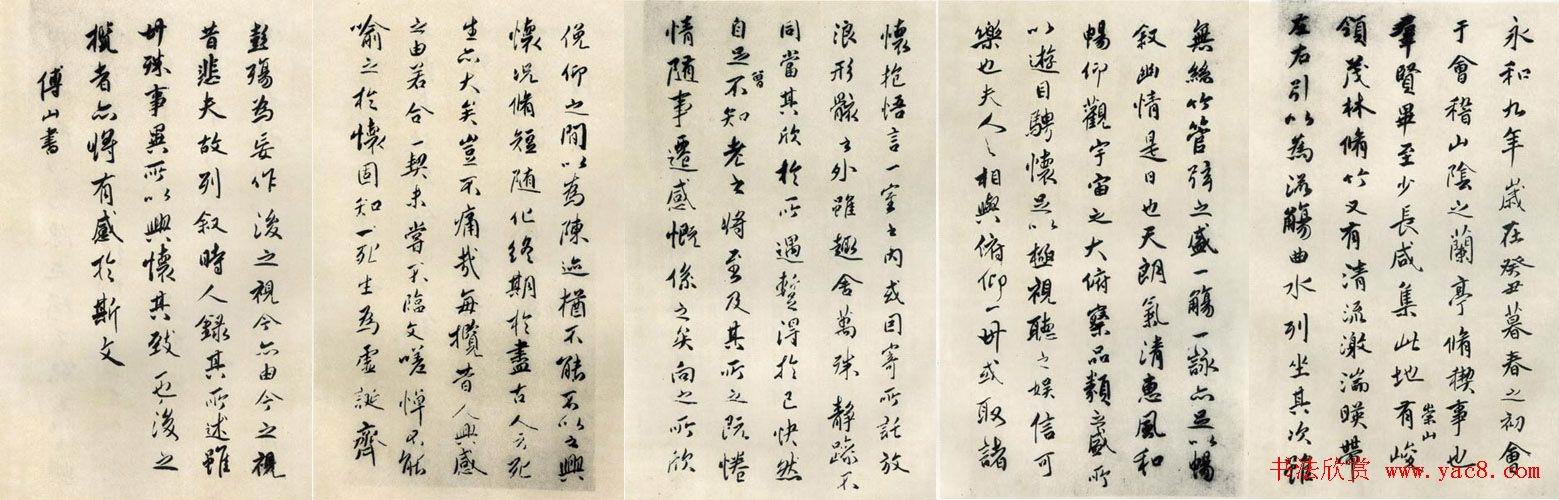 永和九年歲在癸丑暮春之初會
于會稽山陰之蘭亭脩稧事也
羣賢畢至少長咸集此地有峻
崇山
領茂林脩竹又有清流激湍暎帶
左右引以為流觴曲水列坐其次雖
無絲竹管弦之盛一觴一詠亦足以暢
叙幽情是日也天朗氣清惠風和
暢仰觀宇宙之大俯察品類之盛所
以遊目騁懷足以極視聽之娛信可
樂也夫人之相與俯仰一世或取諸
懷抱悟言一室之內或因寄所託放
浪形骸之外雖趣舍萬殊靜躁不
同當其欣於所遇暫得於己快然
自足不知老之將至及其所之既惓
曾
情隨事遷感慨係之矣向之所欣
俛仰之間以為陳迹猶不能不以之興
懷況脩短隨化終期於盡古人云死
生亦大矣豈不痛哉每攬昔人興感
之由若合一契未嘗不臨文嗟悼不能
喻之於懷固知一死生為虛誕齊
彭殤為妄作後之視今亦由今之視
昔悲夫故列叙時人錄其所述雖
世殊事異所以興懷其致一也後之
攬者亦將有感於斯文
傅山書
书法欣赏 www.yac8.com